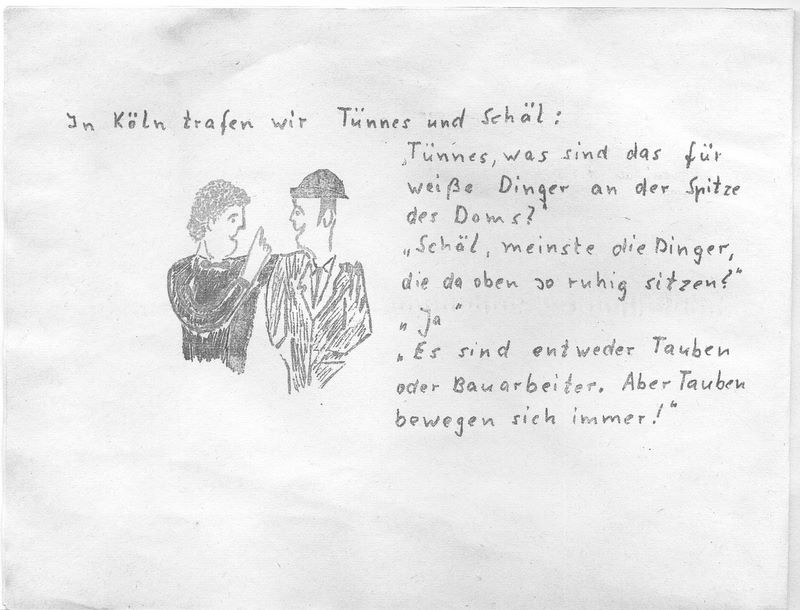 In Köln trafen wir Tünnes und Schäl:
„Tünnes, was sind das für
weiße Dinger an der Spitze
des Doms?"
„Schäl, meinste die Dinger,
die da oben so ruhig sitzen?"
„Ja"
„Es sind entweder Tauben
oder Bauarbeiter. Aber Tauben
bewegen sich immer!"